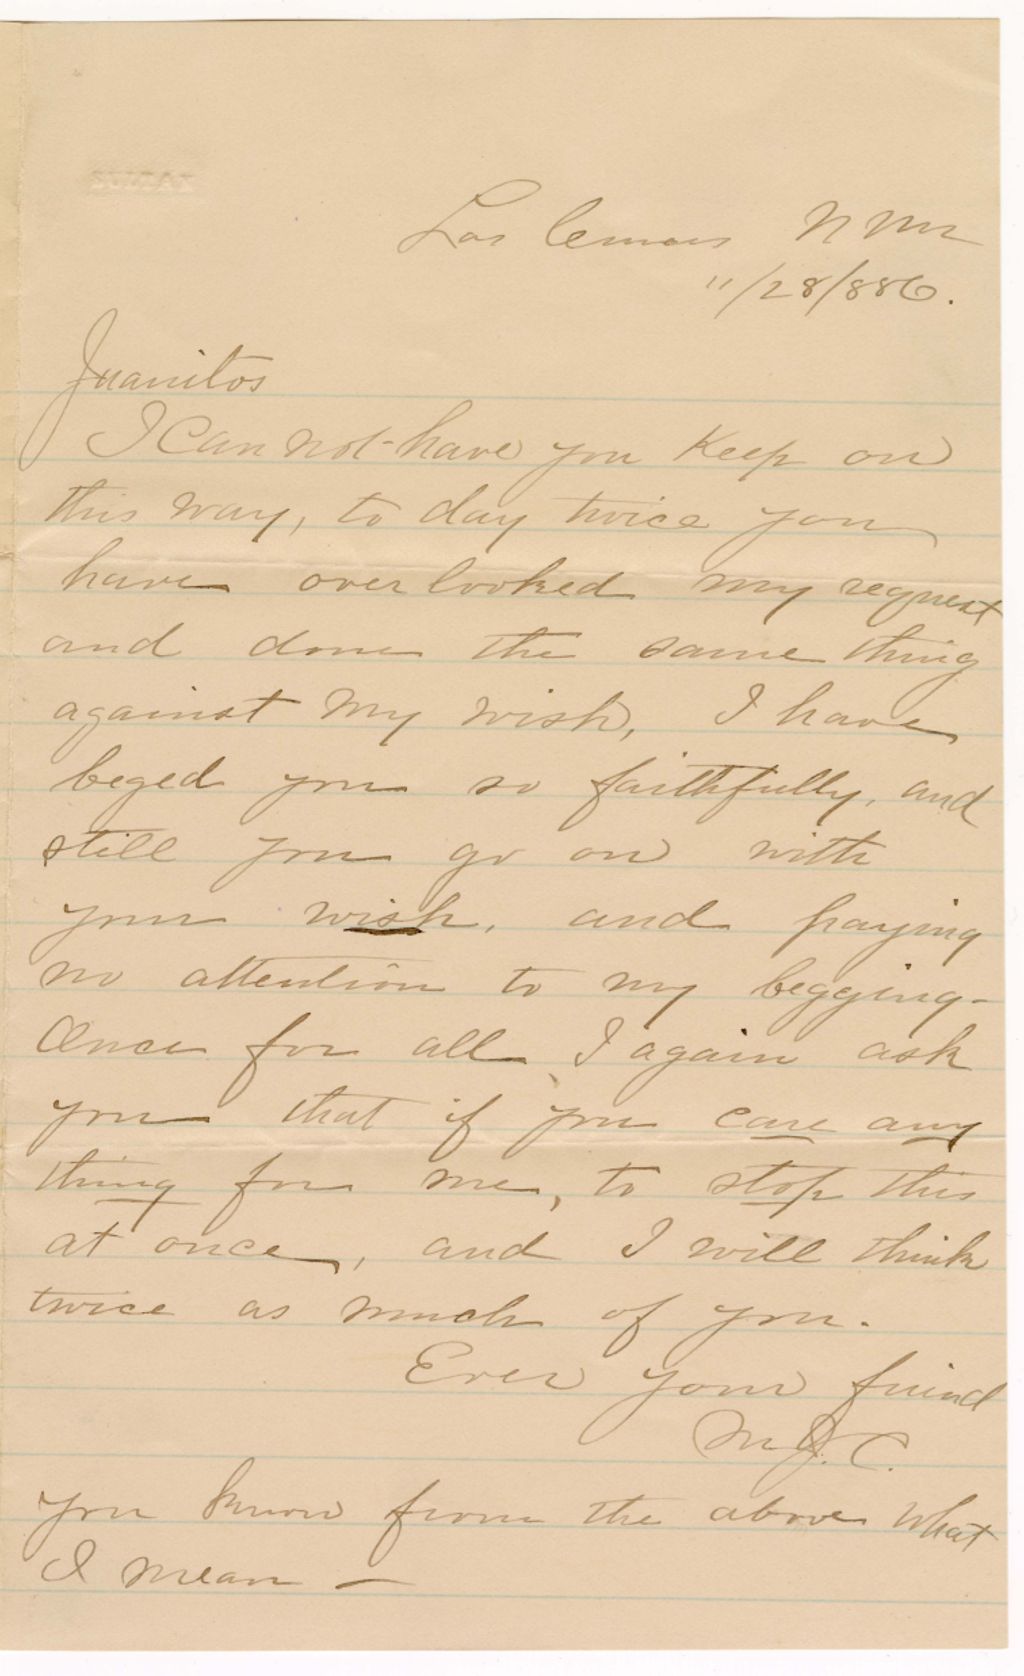 Los Cerrios N M
11/28/886.
Juanitos
I Can not have you Keep on
this way, to day twice you
have over looked my request
and done the same thing
against my wish, I have
beged you so faithfully, and
still you go on with
your wish, and paying
no attention to my begging-
Once for all I again ask
you that if you care any
thing for me, to stop this
at once, and I will think
twice as much of you.
Ever your friend
M. J. C.
you know from the above what
I mean —